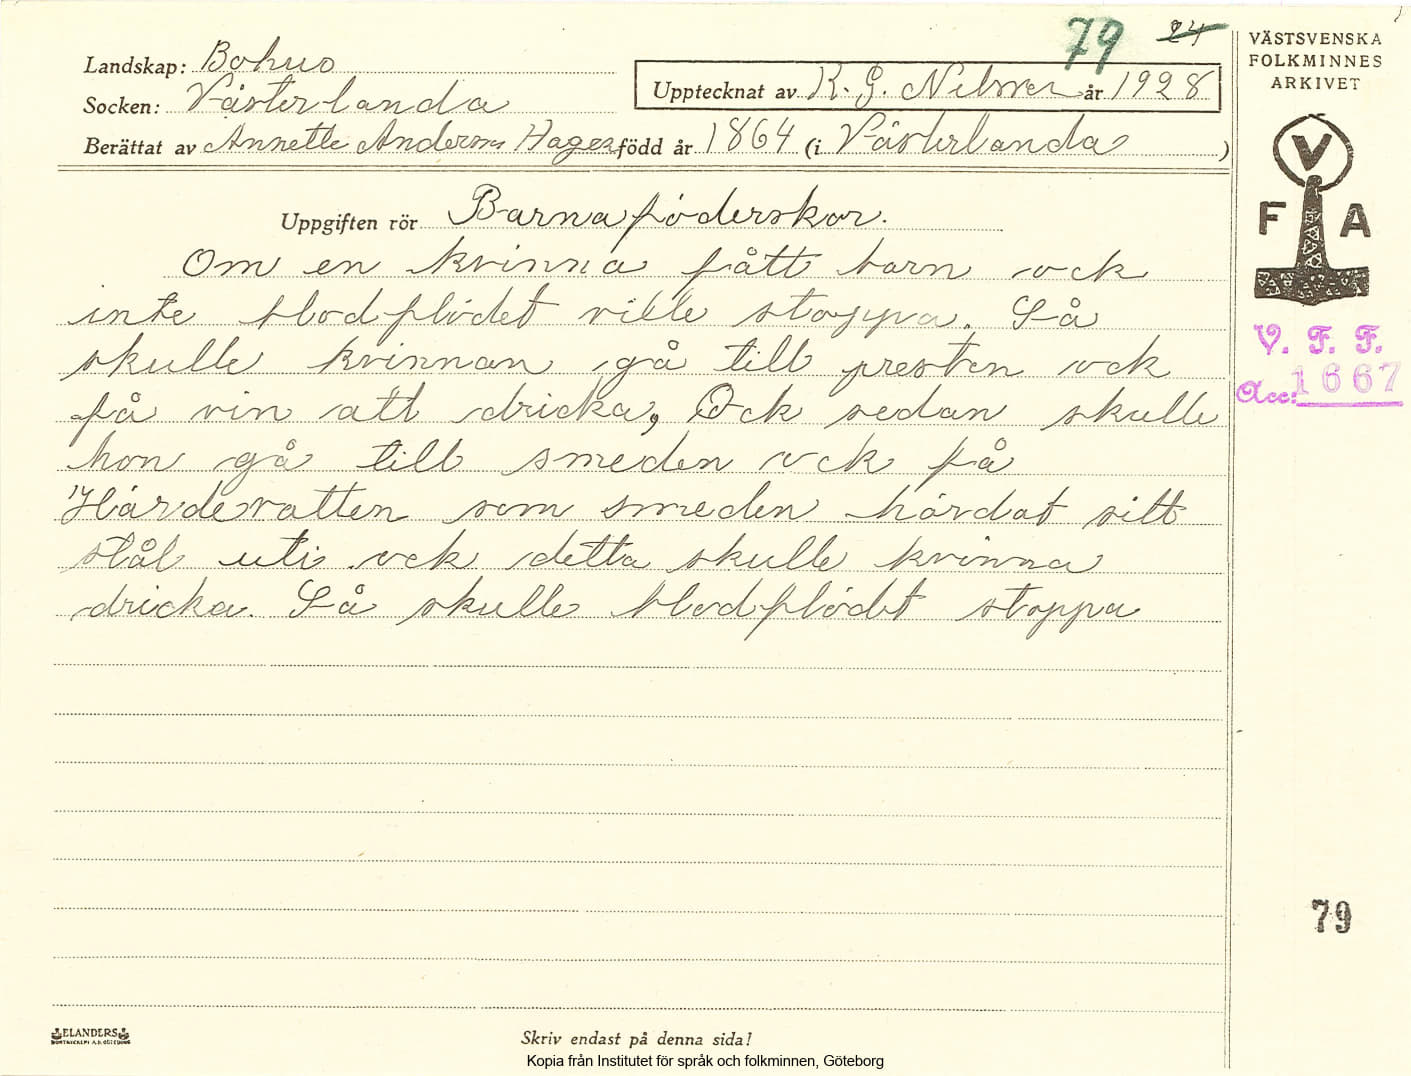 79 24
Landskap: Bohus
Socken: Västerlanda
Upptecknat av K. G. Nilsson år 1928
Berättat av Annette Anderson Hagen född år 1864 (i Västerlanda )
Uppgiften rör Barnaföderskor.
Om en kvinna fått barn ock
inte blodflödet ville stoppa. Så
skulle kvinnan gå till presten ock
få vin att dricka, Ock sedan skulle
hon gå till smeden ock få
Härdevatten som smeden härdat sitt
stål uti ock detta skulle kvinna
dricka. Så skulle blodflödet stoppa
VÄSTSVENSKA
FOLKMINNES
ARKIVET
V
F A
V. F. F.
Acc: 1667
79
ELANDERS
Skriv endast på denna sida!
Kopia från Institutet för språk och folkminnen, Göteborg